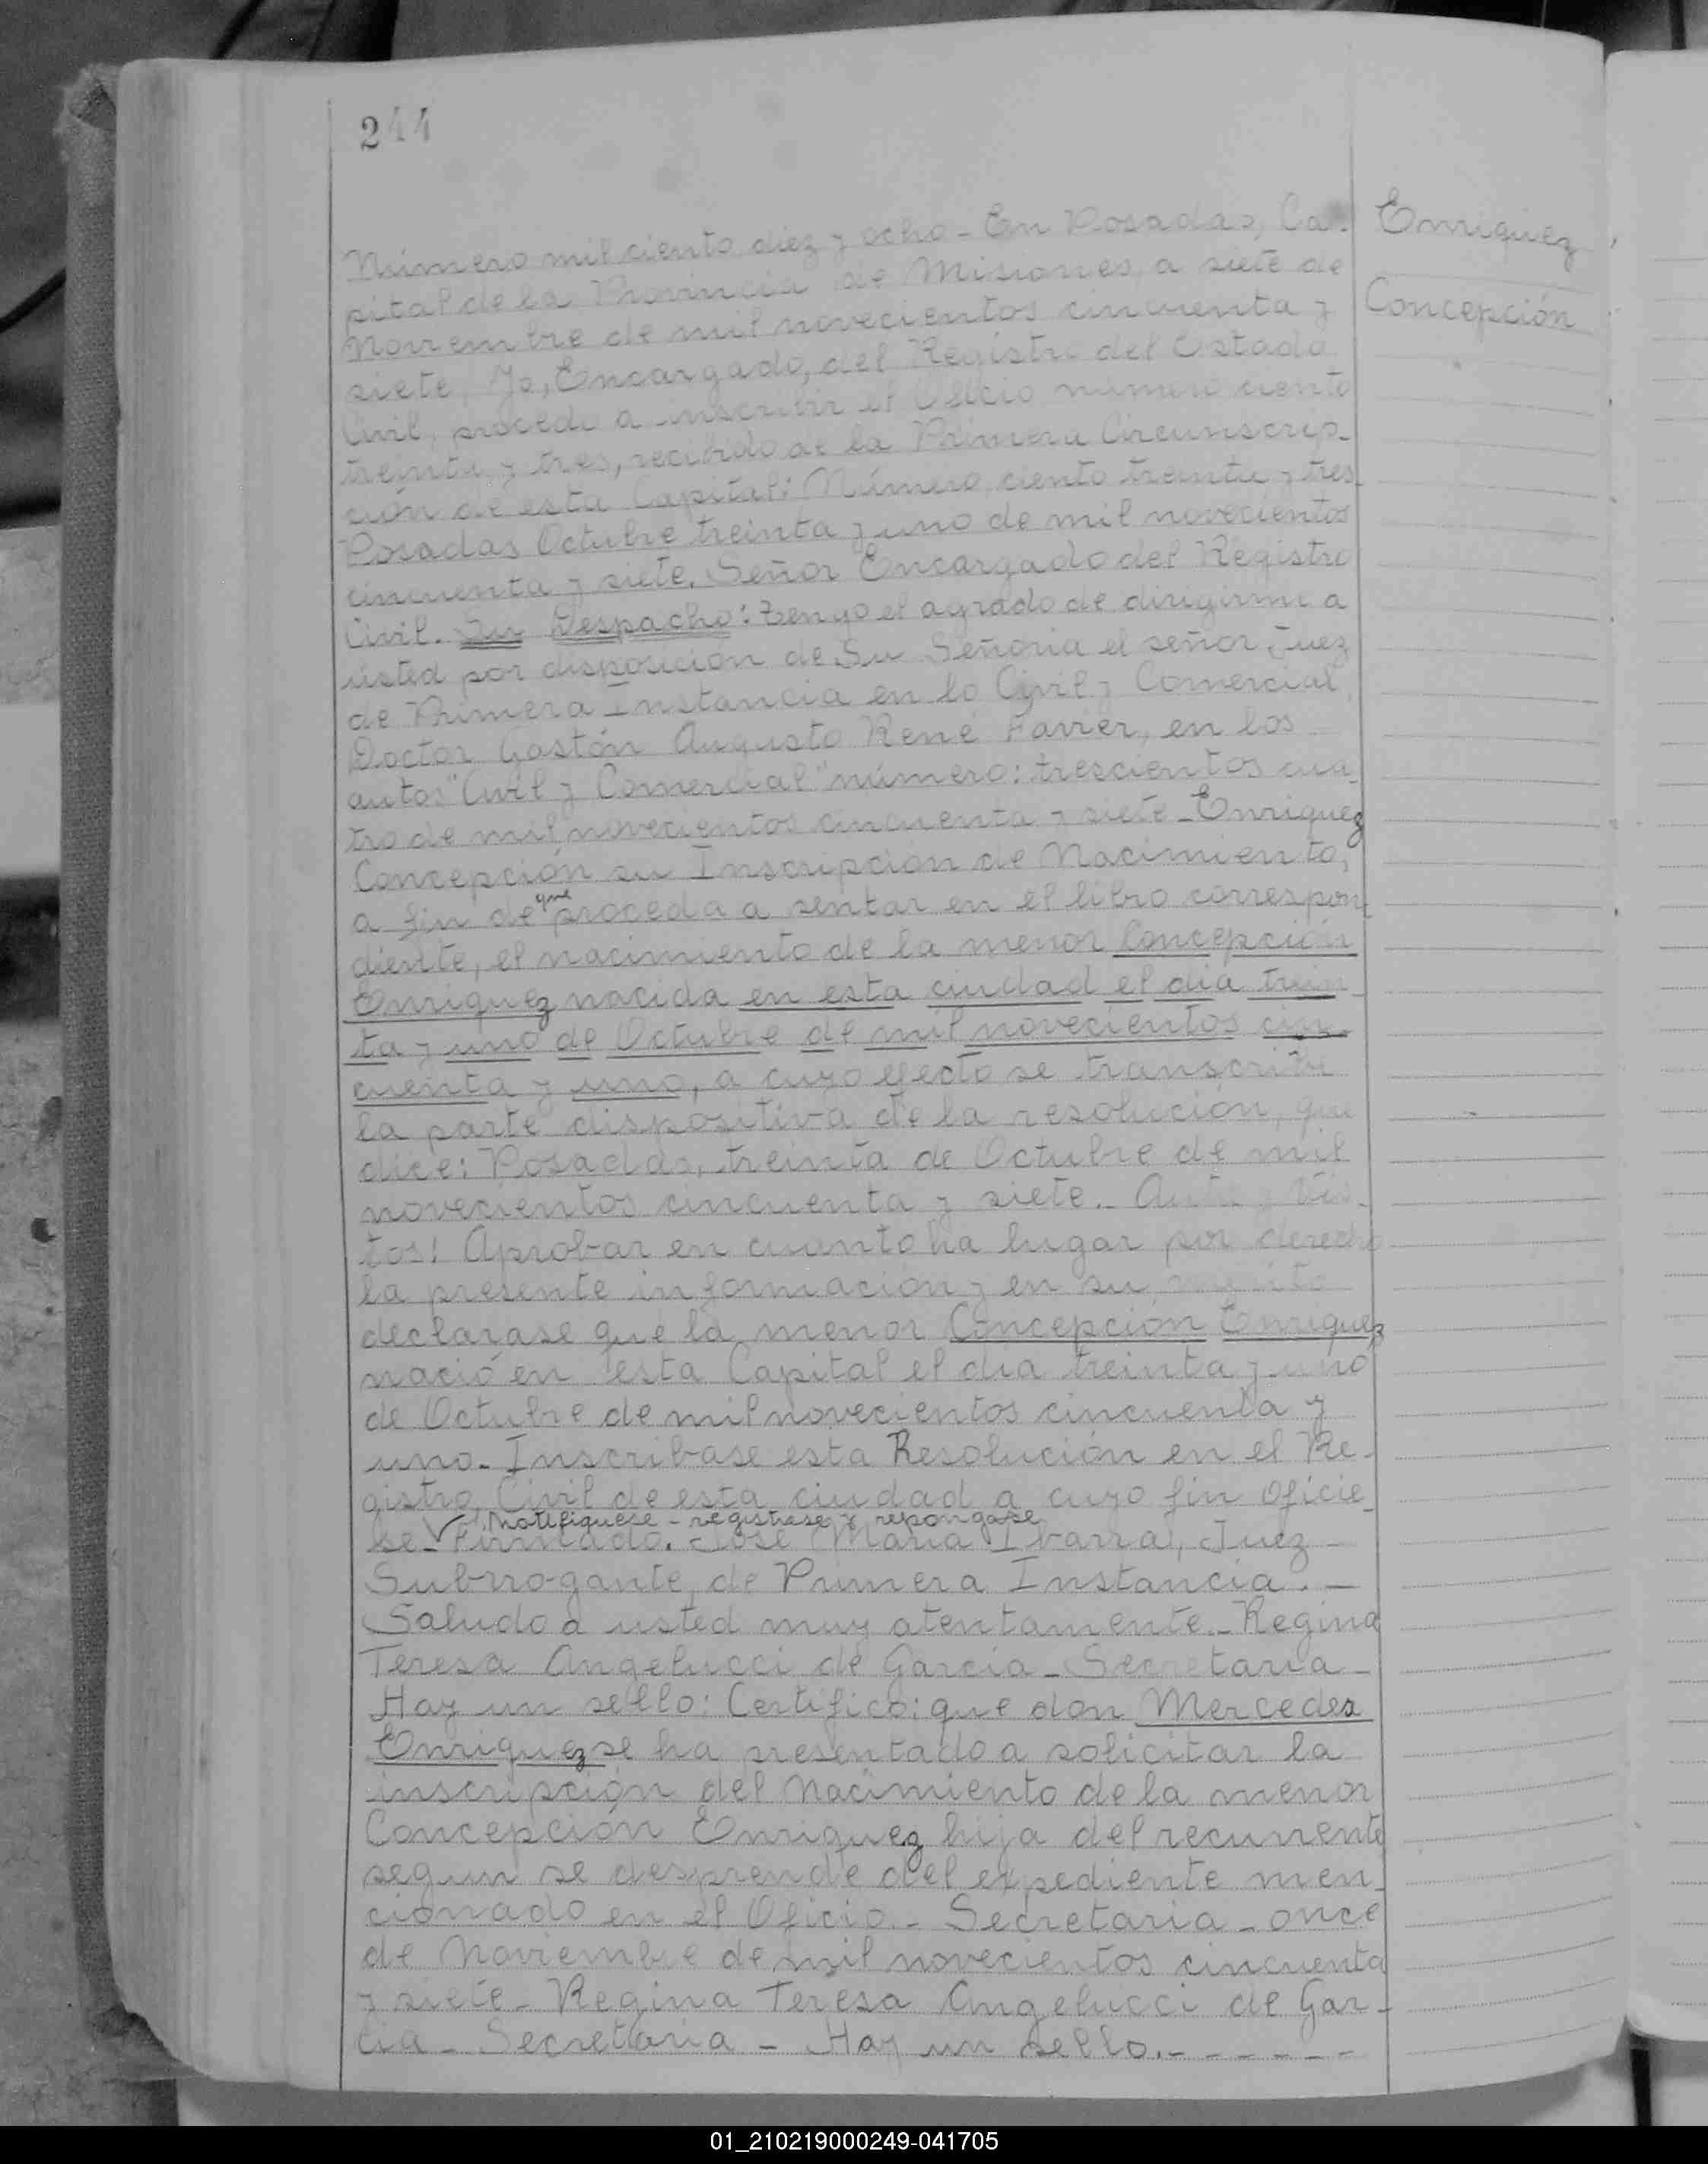 244
Enriquez
Concepción
Número mil ciento diez y ocho - En Posadas, Ca-
pital de la Provincia de Misiones, a siete de
Noviembre de mil novecientos cincuenta y
siete, Yo, Encargado, del Registro del Estado
Civil, procedo a inscribir el Oficio número ciento
treinta y tres, recibido de la Primera Circunscrip-
ción de esta Capital: Número ciento treinta y tres
Posadas Octubre treinta y uno de mil novecientos
cincuenta y siete. Señor Encargado del Registro
Civil. Su Despacho: Tengo el agrado de dirigirme a
usted por disposición de Su Señoria el señor Juez
de Primera Instancia en lo Civil y Comercial,
Doctor Gastón Augusto René Favier, en los
autos "Civil y Comercial" número: trescientos cua-
tro de mil novecientos cincuenta y siete - Enriquez
Concepción su Inscripción de Nacimiento,
a fin de que proceda a sentar en el libro correspon-
diente, el nacimiento de la menor Concepción
Enriquez nacida en esta ciudad el dia trein-
ta y uno de Octubre de mil novecientos cin-
cuenta y uno, a cuyo efecto se transcribe
la parte dispositiva de la resolución, que
dice: Posadas, treinta de Octubre de mil
novecientos cincuenta y siete. - Auto y Vis-
tos: Aprobar en cuanto ha lugar por derecho
la presente información y en su mérito
declarase que la menor Concepción Enriquez
nació en esta Capital el dia treinta y uno
de Octubre de mil novecientos cincuenta y
uno. Inscribase esta Resolución en el Re-
gistro Civil de esta ciudad a cuyo fin oficie-
Notifiquese - registrese y repongase
se - Firmado. José Maria Ibarra, Juez -
Subrrogante de Primera Instancia. -
Saludo a usted muy atentamente. - Regina
Teresa Angelucci de Garcia - Secretaria -
Hay un sello: Certifico: que don Mercedes
Enriquez se ha presentado a solicitar la
inscripción del Nacimiento de la menor
Concepción Enriquez hija del recurrente
segun se desprende del expediente men-
cionado en el Oficio. - Secretaria - once
de Noviembre de mil novecientos cincuenta
y siete - Regina Teresa Angelucci de Gar-
cia - Secretaria - Hay un sello. - - - - - -
01_210219000249-041705